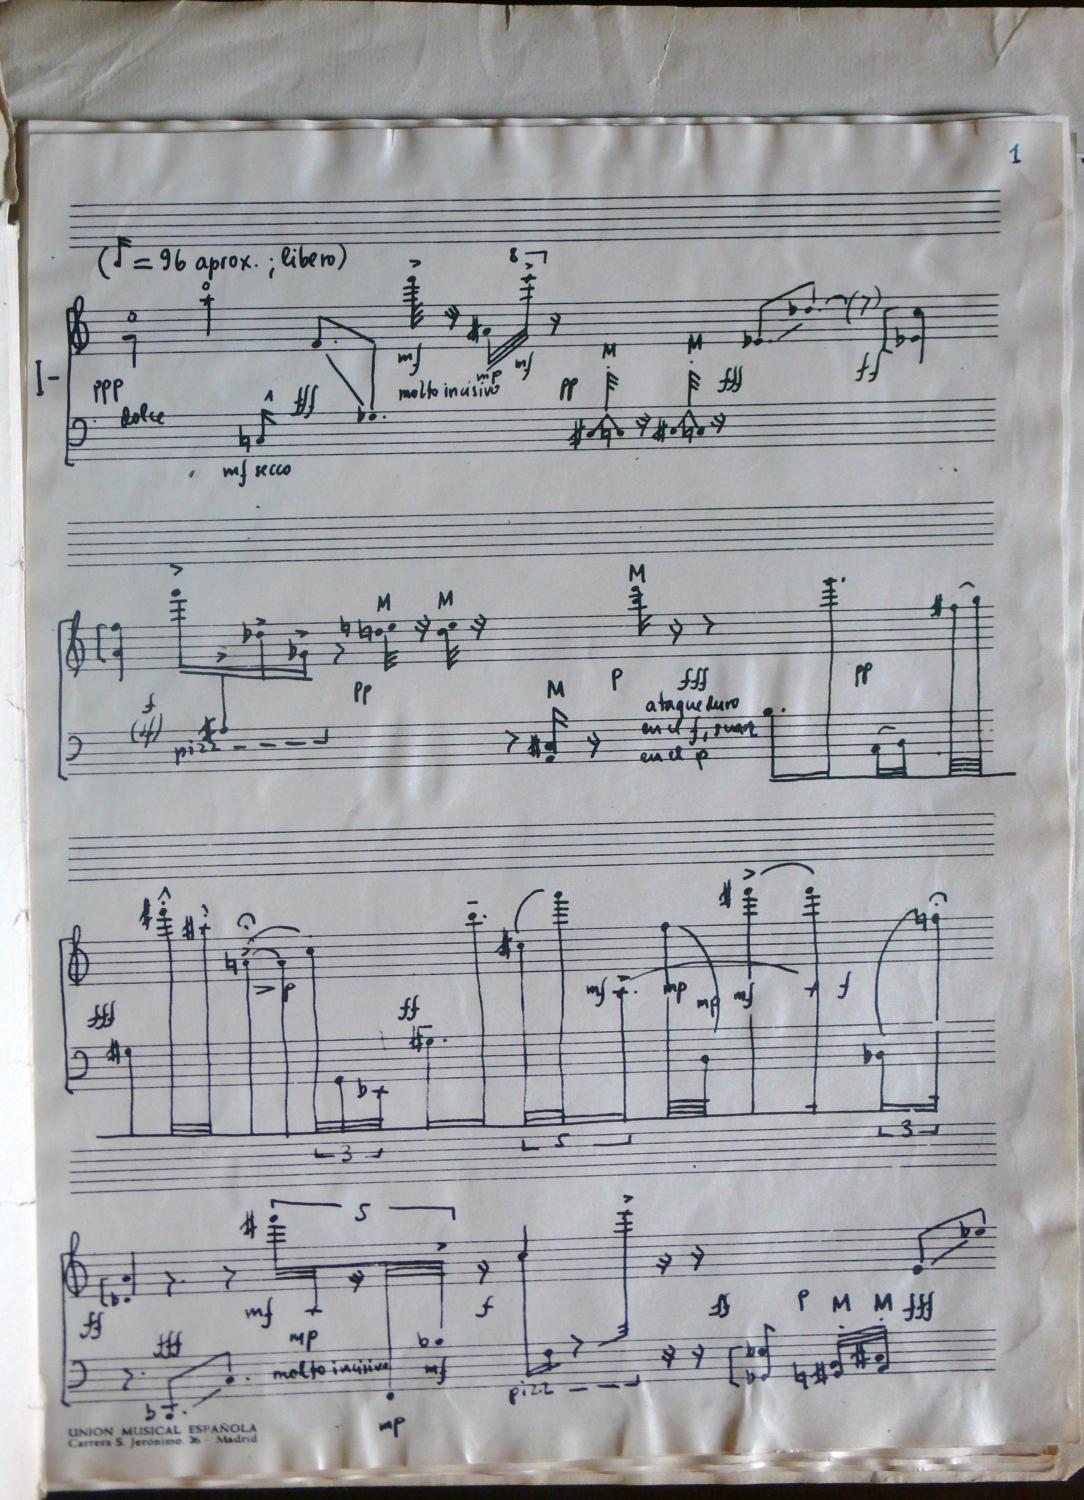 1
(♬ = 96 aprox. ; libero)
8
I-
ppp
dolce
mf secco
fff
mf
molto incisivo
mp
mf
pp
M
M
fff
ff
f
(4)
pizz
M
M
pp
M
p
M
fff
ataque duro
en el f, suave
en el p
pp
fff
> p
3
ff
5
mf
mp
mp
mf
f
3
5
ff
fff
mf
mp
molto incisivo
mp
mf
f
pizz
ff
p
M
M
fff
UNION MUSICAL ESPAÑOLA
Carrera S. Jerónimo, 26 - Madrid